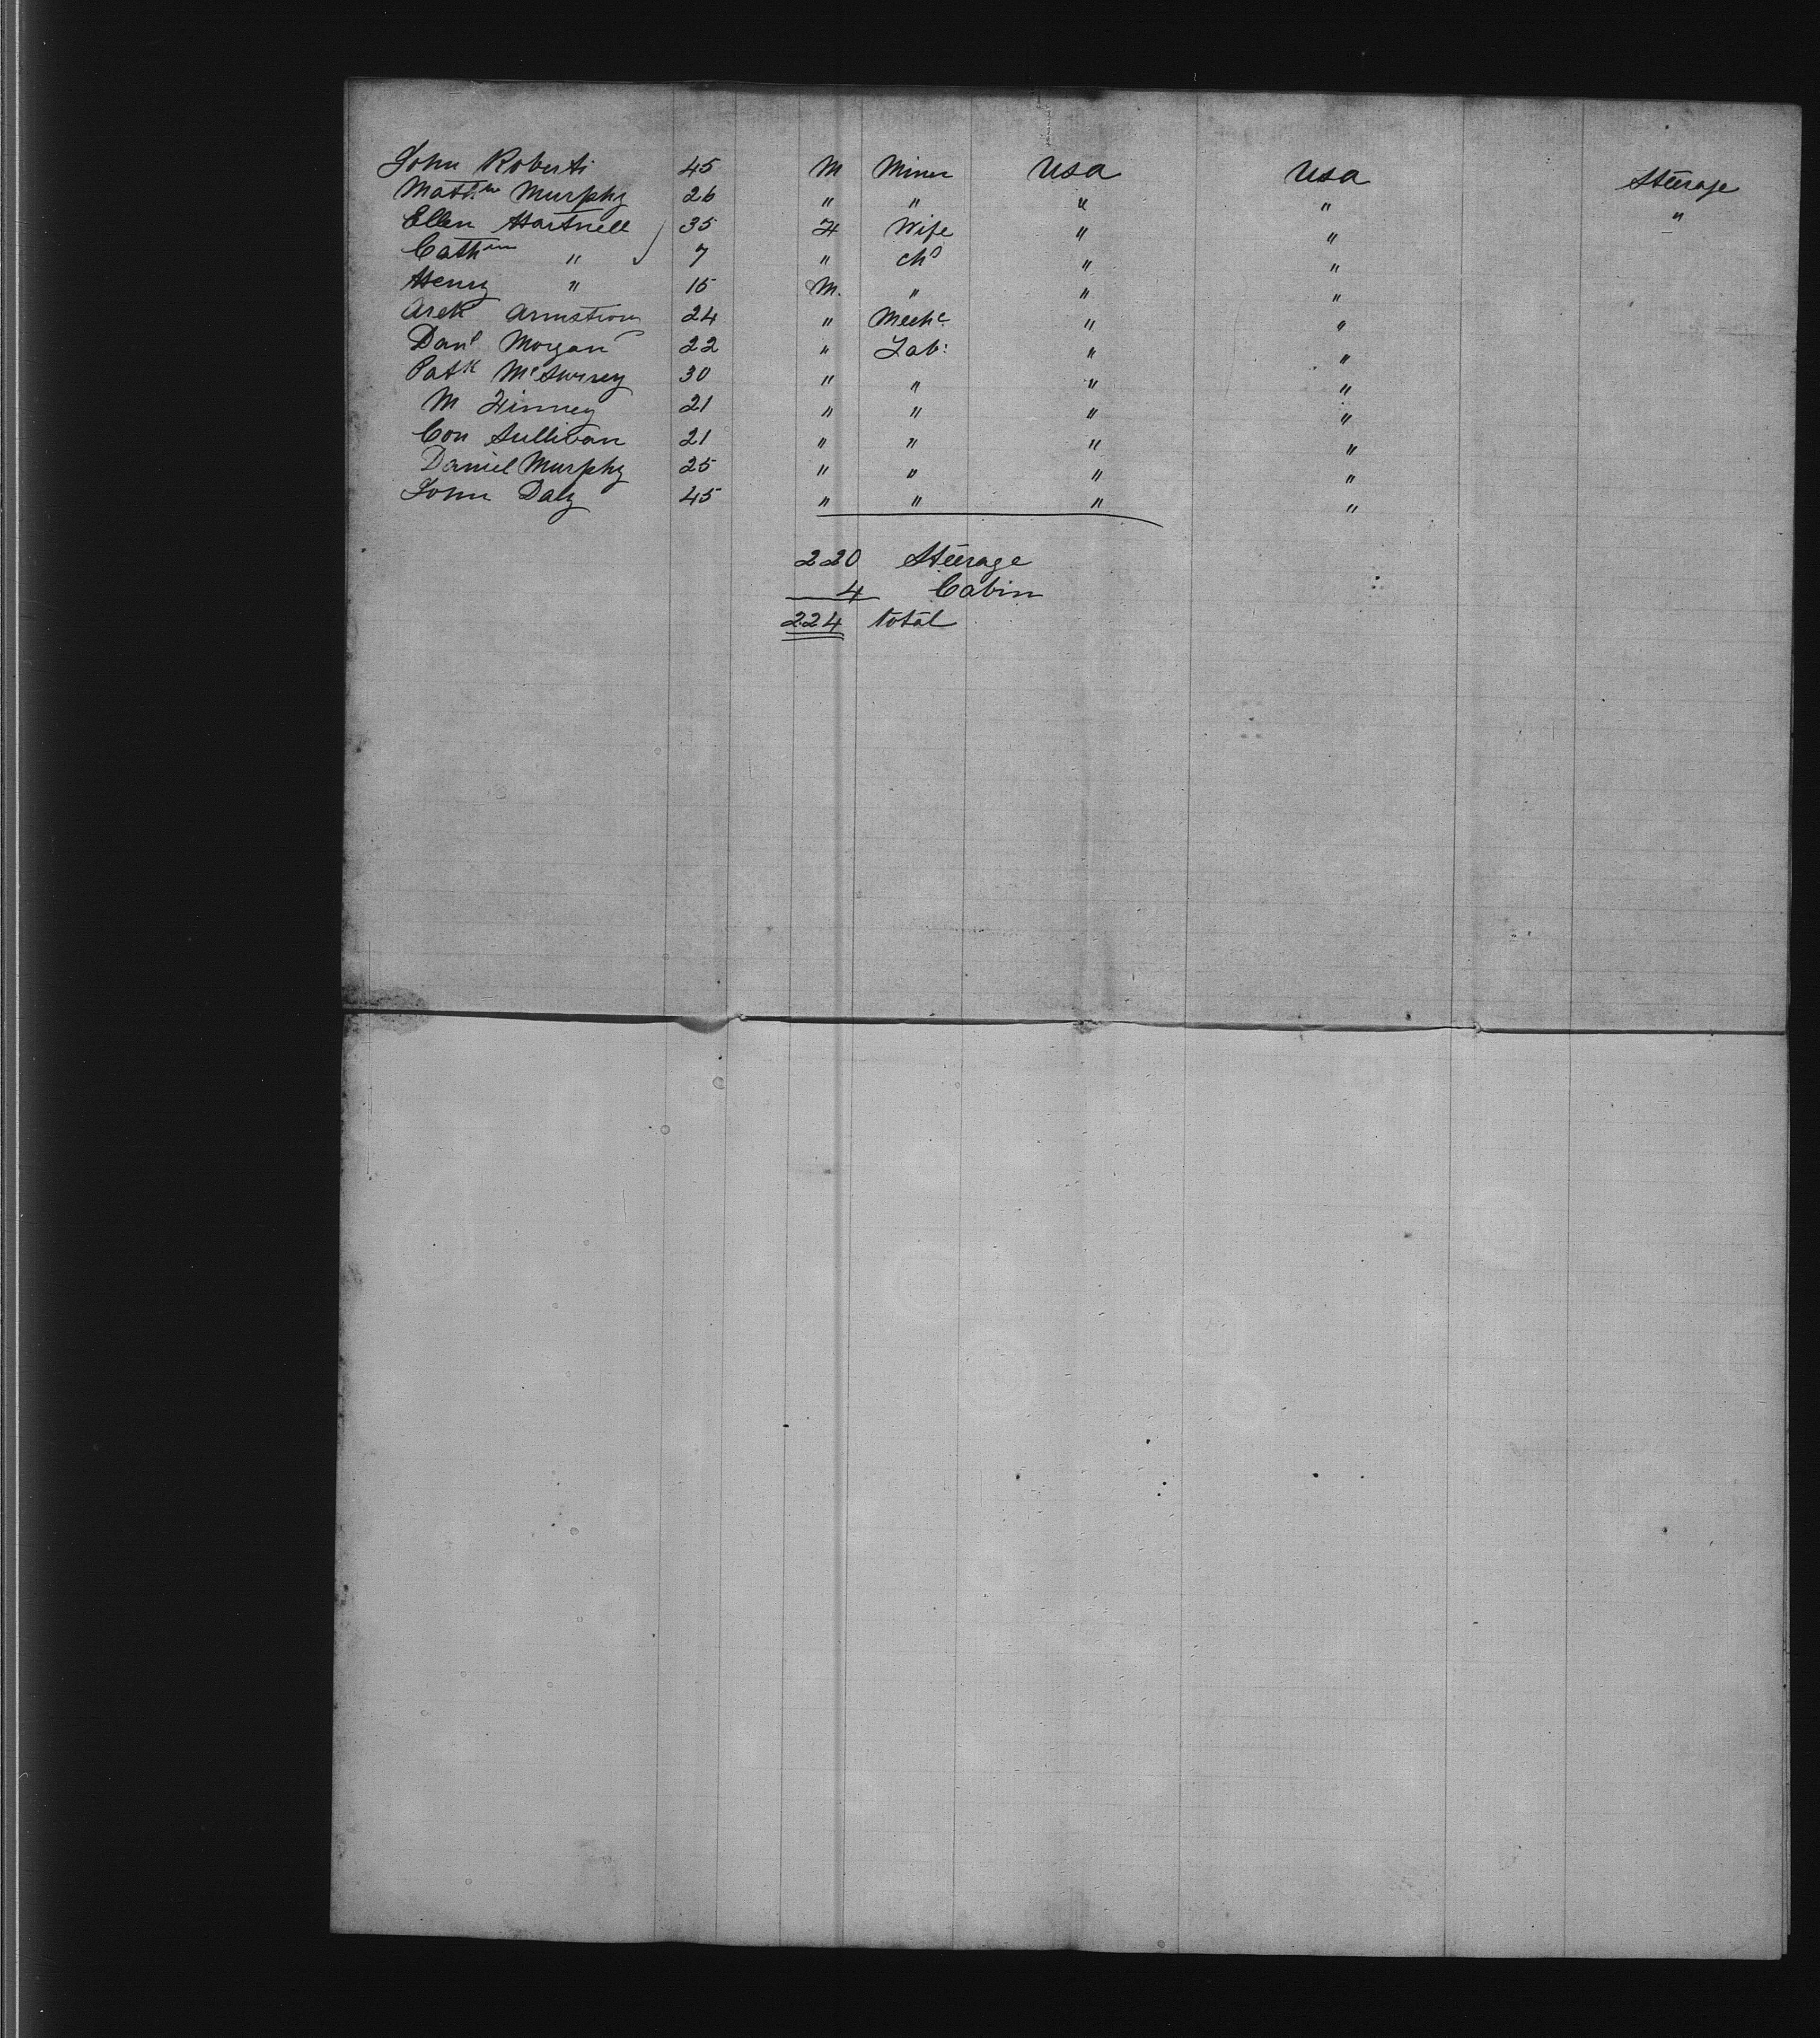 John Roberts 45 M Miner USA USA Steerage
Matt.ew Murphy 26 " " " " "
Ellen Hartnell 35 F Wife " "
Cath " 7 " chd " "
Henry " 15 M. " " "
Arch Armstrong 24 " Mechc " "
Danl Morgan 22 " Lab: " "
Patk 30 " " " "
M Finney 21 " " " "
Con Sullivan 21 " " " "
Daniel Murphy 25 " " " "
John Daly 45 " " " "
220 Steerage
4 Cabin
224 total